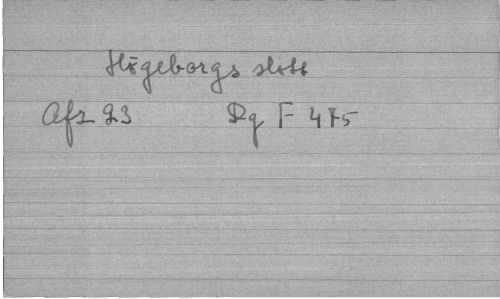 Högeborgs slott
Afz 93 Dg F 475